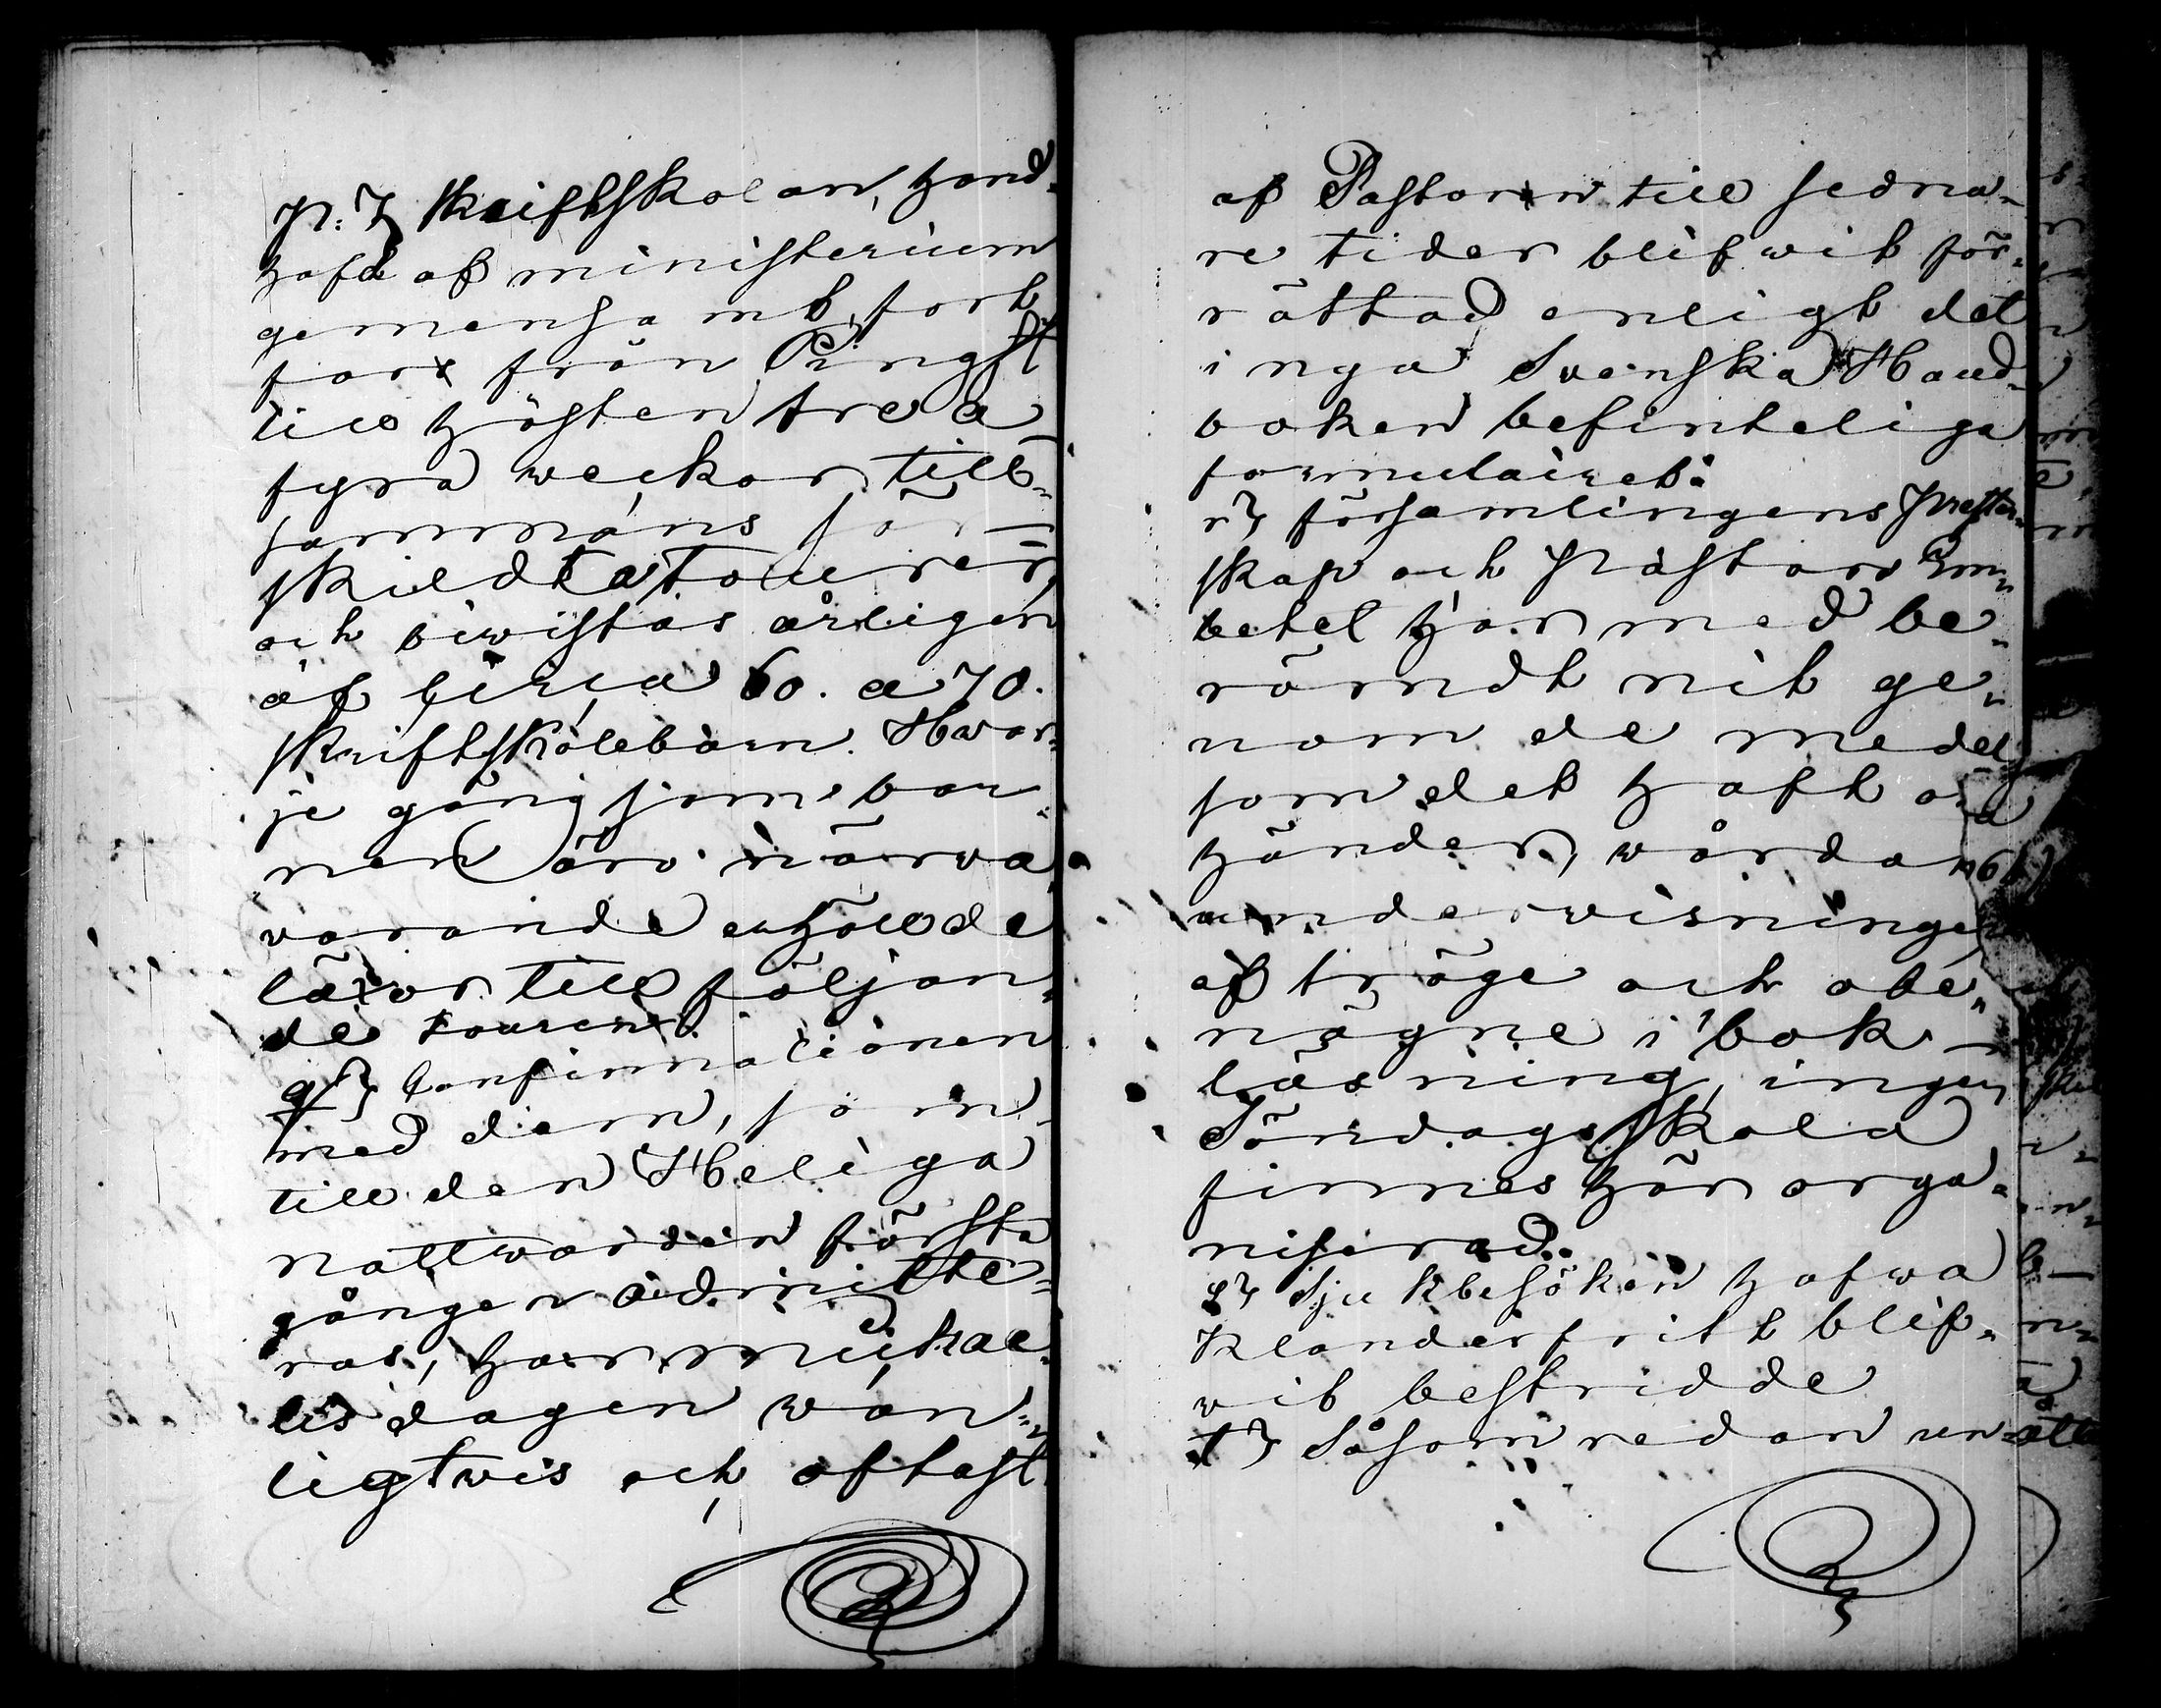 p.) Skriftskolan, hand-
hafd af ministerium
gemensamt, fort
fars från Pingst
till hösten tre a
fyra weckor till-
sammans för-
skildta tourer,
och biwistas årligen
af circa 60. a 70.
Skriftskolebarn. Hwar-
je gång som bar-
nen äro närva-
varande erhålla de
läxor till följan-
de touren.
q) Confirmationen
med dem, som
till den Heliga
nattwarden första
gången admitte-
ras, har michae-
lisdagen wan-
ligtwis och oftast
af Pastorn till sedna-
re tider blifwit för-
rättad enligt det
i nya Swenska Hand-
boken befinteliga
formulairet.
r) församlingens Prester-
skap och Pastors Em-
betet har med be-
römdt nit ge-
nom de medel,
som det haft a
händer, wårdat
underwisningen
af tröge och obe-
nägne i bok-
läsning, ingen
Söndagsskola
finnes här orga-
niserad.
s) Sjukbesöken hafwa
klanderfritt blif-
wit bestridde
t) Såsom redan un-